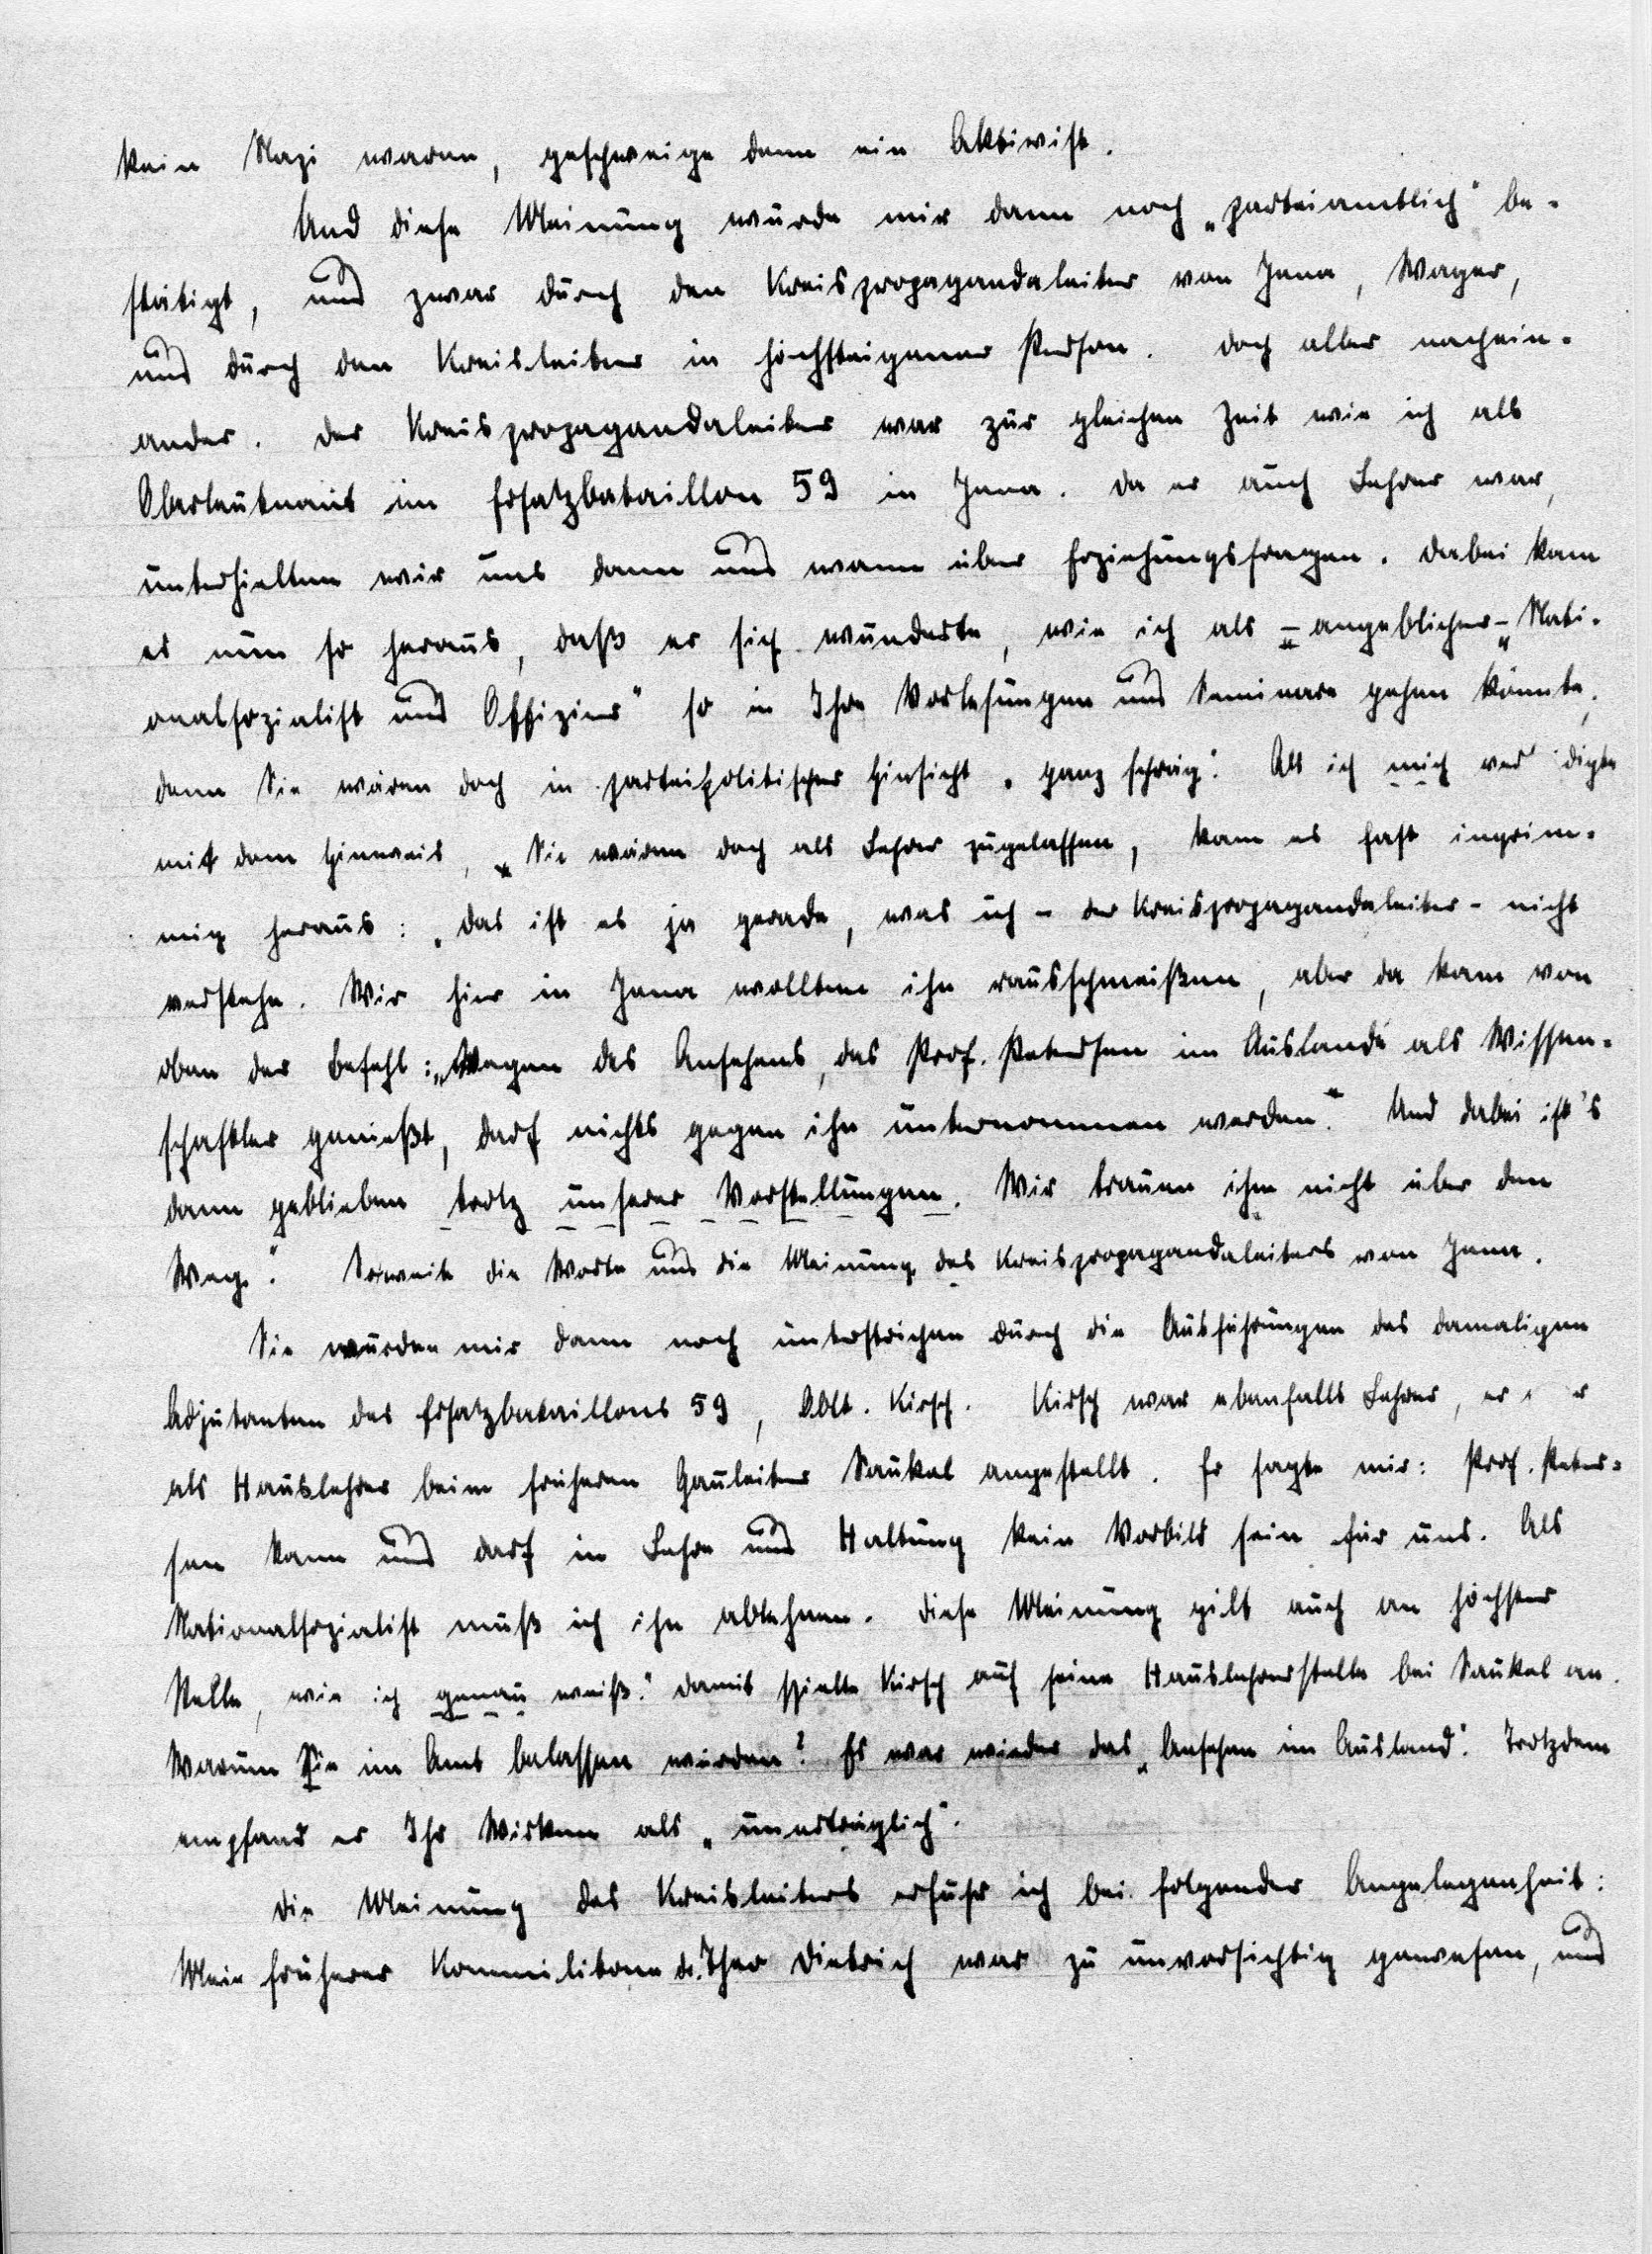 kein Nazi waren, geschweige denn ein Aktivist.
Und diese Meinung wurde mir dann noch „parteiamtlich“ be-
stätigt, und zwar durch den Kreispropagandaleiter von Jena, Wager,
und durch den Kreisleiter in höchsteigener Person. Doch alles nachein-
ander. Der Kreispropagandaleiter war zur gleichen Zeit wie ich als
Oberleutnant im Ersatzbataillon 59 in Jena. Da er auch Lehrer war,
unterhielten wir uns dann und wann über Erziehungsfragen. Dabei kam
es nun so heraus, daß er sich wunderte, wie ich als – angeblicher – „Nati-
onalsozialist und Offizier“ so in Ihre Vorlesungen und Seminare gehen könnte,
denn Sie wären doch in parteipolitischer Hinsicht „ganz schräg“. Als ich mich ver digte
mit dem Hinweis, „Sie wären doch als Lehrer zugelassen, kam es fast ingrim-
mig heraus: „Das ist es ja gerade, was ich – der Kreispropagandaleiter – nicht
verstehe. Wir hier in Jena wollten ihn rausschmeißen, aber da kam von
oben der Befehl: „Wegen des Ansehens, das Prof. Petersen im Auslande als Wissen-
schaftler genießt, darf nichts gegen ihn unternommen werden.“ Und dabei ist's
dann geblieben trotz unserer Vorstellungen. Wir trauen ihm nicht über den
Weg“. Soweit die Worte und die Meinung des Kreispropagandaleiters von Jena.
Sie wurden mir dann noch unterstrichen durch die Ausführungen des damaligen
Adjutanten des Ersatzbataillons 59, Oblt. Kirsch. Kirsch war ebenfalls Lehrer, er
als Hauslehrer beim früheren Gauleiter Saukel angestellt. Er sagte mir: Prof. Peter-
sen kann und darf in Lehre und Haltung kein Vorbild sein für uns. Als
Nationalsozialist muß ich ihn ablehnen. Diese Meinung gilt auch an höchster
Stelle, wie ich genau weiß.“ Damit spielte Kirsch auf seine Hauslehrerstelle bei Saukel an.
Warum Sie im Amt belassen würden? Es war wieder das „Ansehen im Ausland“. Trotzdem
empfand er Ihr Wirken als „unerträglich“.
Die Meinung des Kreisleiters erfuhr ich bei folgender Angelegenheit:
Mein früherer Kommilitone Dr. Theo Dietrich war zu unvorsichtig gewesen, und